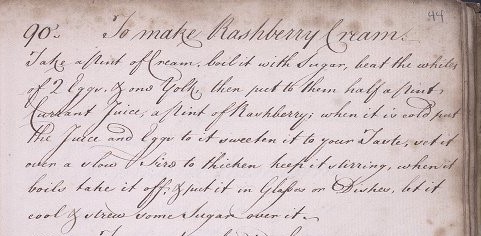 44
90. To make Rashberry Cream.
Take a Pint of Cream, boil it with Sugar, beat the whites
of 2 Eggs, & one Yolk, then put to them half a Pint
Currant Juice, a Pint of Rashberry; when it is cold put
the Juice and Eggs to it sweeten it to your Taste, set it
over a slow Fire to thicken keep it stirring, when it
boils take it off; & put it in Glasses or Dishes, let it
cool & strew some Sugar over it.